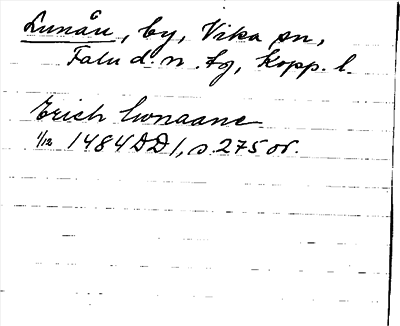 Lunån, by, Vika sn,
Falu d. n. fg, Kopp. l.
Erich lwnaane
1/12 1484 DD 1, s. 275 or.